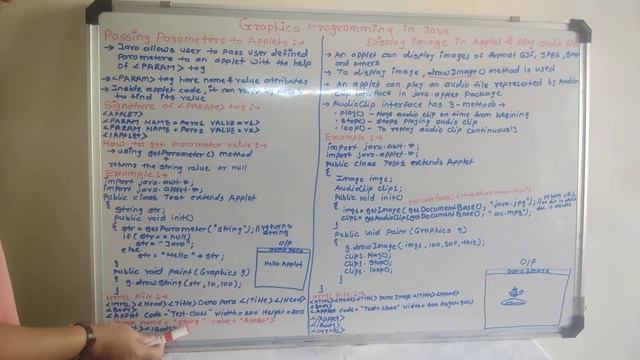 Graphics Programming in Java
Passing Parameters to Applets :-
→ Java allows user to pass user defined
Parameters to an applet with the help
of <PARAM> tag
→ <PARAM> tag have name & value attributes
→ Inside applet code, it can refer
to find its value
Signature of <PARAM> tag :-
<APPLET>
<PARAM NAME = Para1 VALUE = VL>
<PARAM NAME = Para2 VALUE = VS>
</APPLET>
How to get parameter value :-
→ using getParameter() method
returns the string value or null
Example :-
import java.awt.*;
import java.applet.*;
Public class Test extends Applet
{
String str;
Public void init()
{ str = getParameter("string"); // return
string
if (str == null)
str = "Java";
else
str = "Hello" + str;
}
Public void paint (Graphics g)
{
g.drawString (str, 10, 100);
}
O/P
Hello Applet
HTML File :-
<HTML><Head><Title> Demo Para </Title></Head>
<Body>
<Applet Code = "Test.class" Width = 200 Height = 200
name = "string" value = "Applet">
</Body>
Display image in Applet & play audio
→ An applet can display images of format GIF, JPEG, Bmp
and others
→ To display image, drawImage() method is used
→ An applet can play an audio file represented by Audio-
Clip interface in java.applet package
→ AudioClip interface has 3-methods →
• play() - Plays audio clip on time from begining
• stop() - Stops playing audio clip
• loop() - To replay audio clip continuously
Example :-
import java.awt.*;
import java.applet.*;
Public class Test1 extends Applet
{
Image img1;
AudioClip clip1;
Public void init()
{ img1 = getImage (getDocumentBase(), "java.jpg");
clip1 = getAudioClip(getDocumentBase(), "au.mp3");
}
Public void paint (Graphics g)
{
g.drawImage (img1, 100, 100, this);
clip1.play();
clip1.stop();
clip1.loop();
}
O/P
Demo Image
HTML File :-
<HTML><Head><Title> Demo Image </Title></Head>
<Body>
<Applet Code = "Test1.class" Width = 400 Height = 300>
</Applet>
</Body>
</HTML>